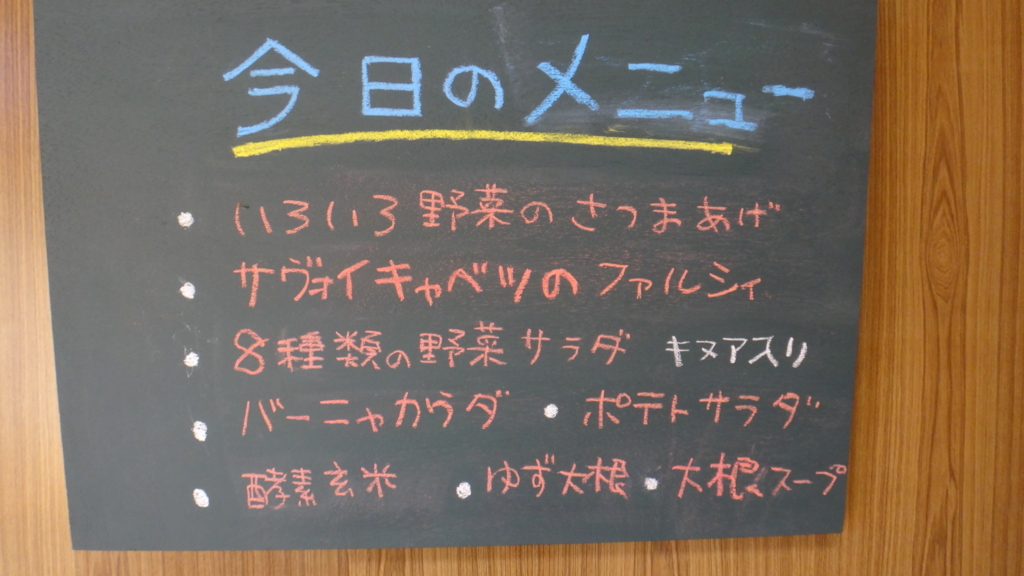 今日のメニュー
・いろいろ野菜のさつまあげ
・サヴォイキャベツのファルシィ
・8種類の野菜サラダ キヌアスリ
・バーニャカウダ ・ポテトサラダ
・酵素玄米 ・ゆず大根 ・大根スープ